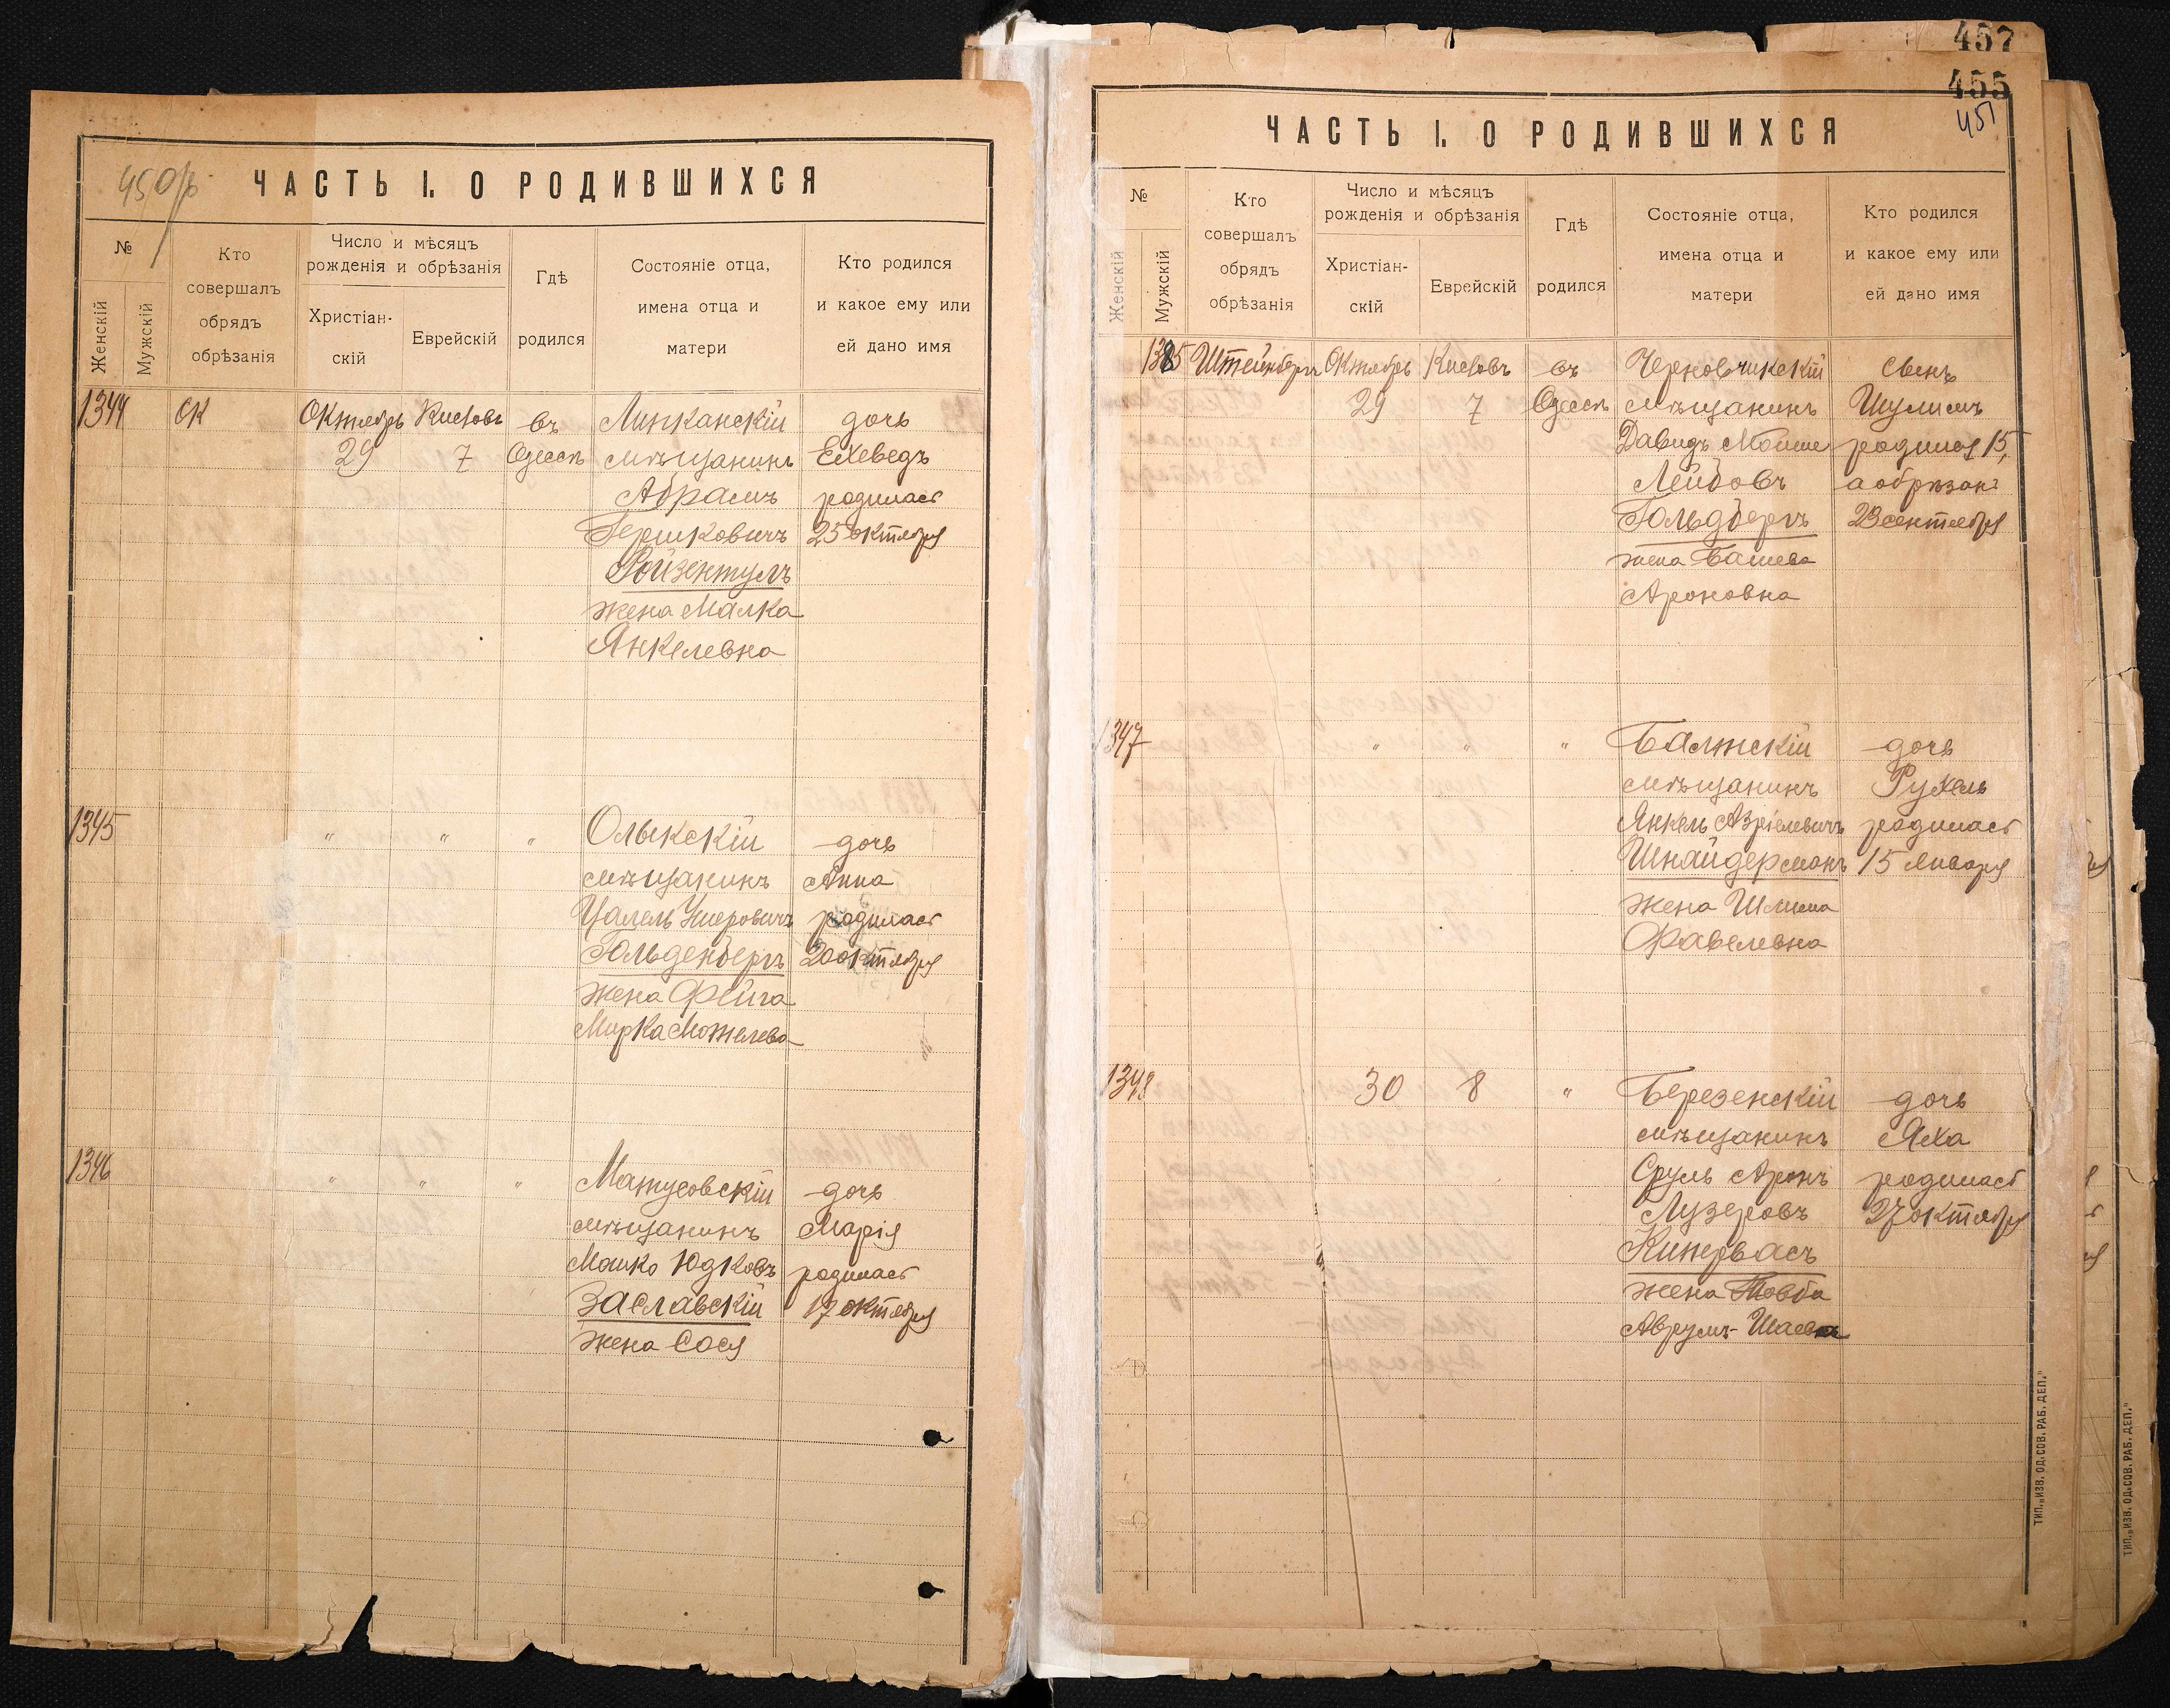 450б
ЧАСТЬ I. О РОДИВШИХСЯ
№
Женскій
Мужскій
Кто
совершалъ
обрядъ
обрѣзанія
Число и мѣсяцъ
рожденія и обрѣзанія
Христіан-
скій
Еврейскій
Гдѣ
родился
Состояніе отца,
имена отца и
матери
Кто родился
и какое ему или
ей дано имя
1344
Октябрь
29
Кисловъ
7
въ
Одессѣ
Липканскій
мѣщанинъ
Абрамъ
Гершковичъ
Ройзентулъ
жена Малка
Янкелевна
дочь
Ехеведъ
родилась
25 октября
1345
"
"
"
Олыкскій
мѣщанинъ
Цалель Ушеровичъ
Гольденбергъ
жена Фейга
Мирка Мошелева
дочь
Анна
родилась
20 октября
1346
"
"
"
Матусовскій
мѣщанинъ
Мошко Юдковъ
Заславскій
жена Сося
дочь
Марія
родилась
17 октября
457
455
451
ЧАСТЬ I. О РОДИВШИХСЯ
№
Женскій
Мужскій
Кто
совершалъ
обрядъ
обрѣзанія
Число и мѣсяцъ
рожденія и обрѣзанія
Христіан-
скій
Еврейскій
Гдѣ
родился
Состояніе отца,
имена отца и
матери
Кто родился
и какое ему или
ей дано имя
1385
Штейнбергъ
Октябрь
29
Кисловъ
7
въ
Одессѣ
мѣщанинъ
Давидъ Мойше
Лейбовъ
Гольдбергъ
жена Башева
Ароновна
сынъ
Шулимъ
родился 15,
а обрѣзанъ
23 сентября
1347
"
"
"
Балтскій
мѣщанинъ
Янкель Азріелевичъ
Шнайдерманъ
жена Шлима
Фавелевна
дочь
Рухель
родилась
15 января
1348
30
8
"
Березенскій
мѣщанинъ
Сруль Аронъ
Лузеровъ
Кипервасъ
жена Товба
Аврумъ-Шаевна
дочь
Яха
родилась
27 октября
ТИП. „ИЗВ. ОД. СОВ. РАБ. ДЕП."
ТИП. „ИЗВ. ОД. СОВ. РАБ. ДЕП."